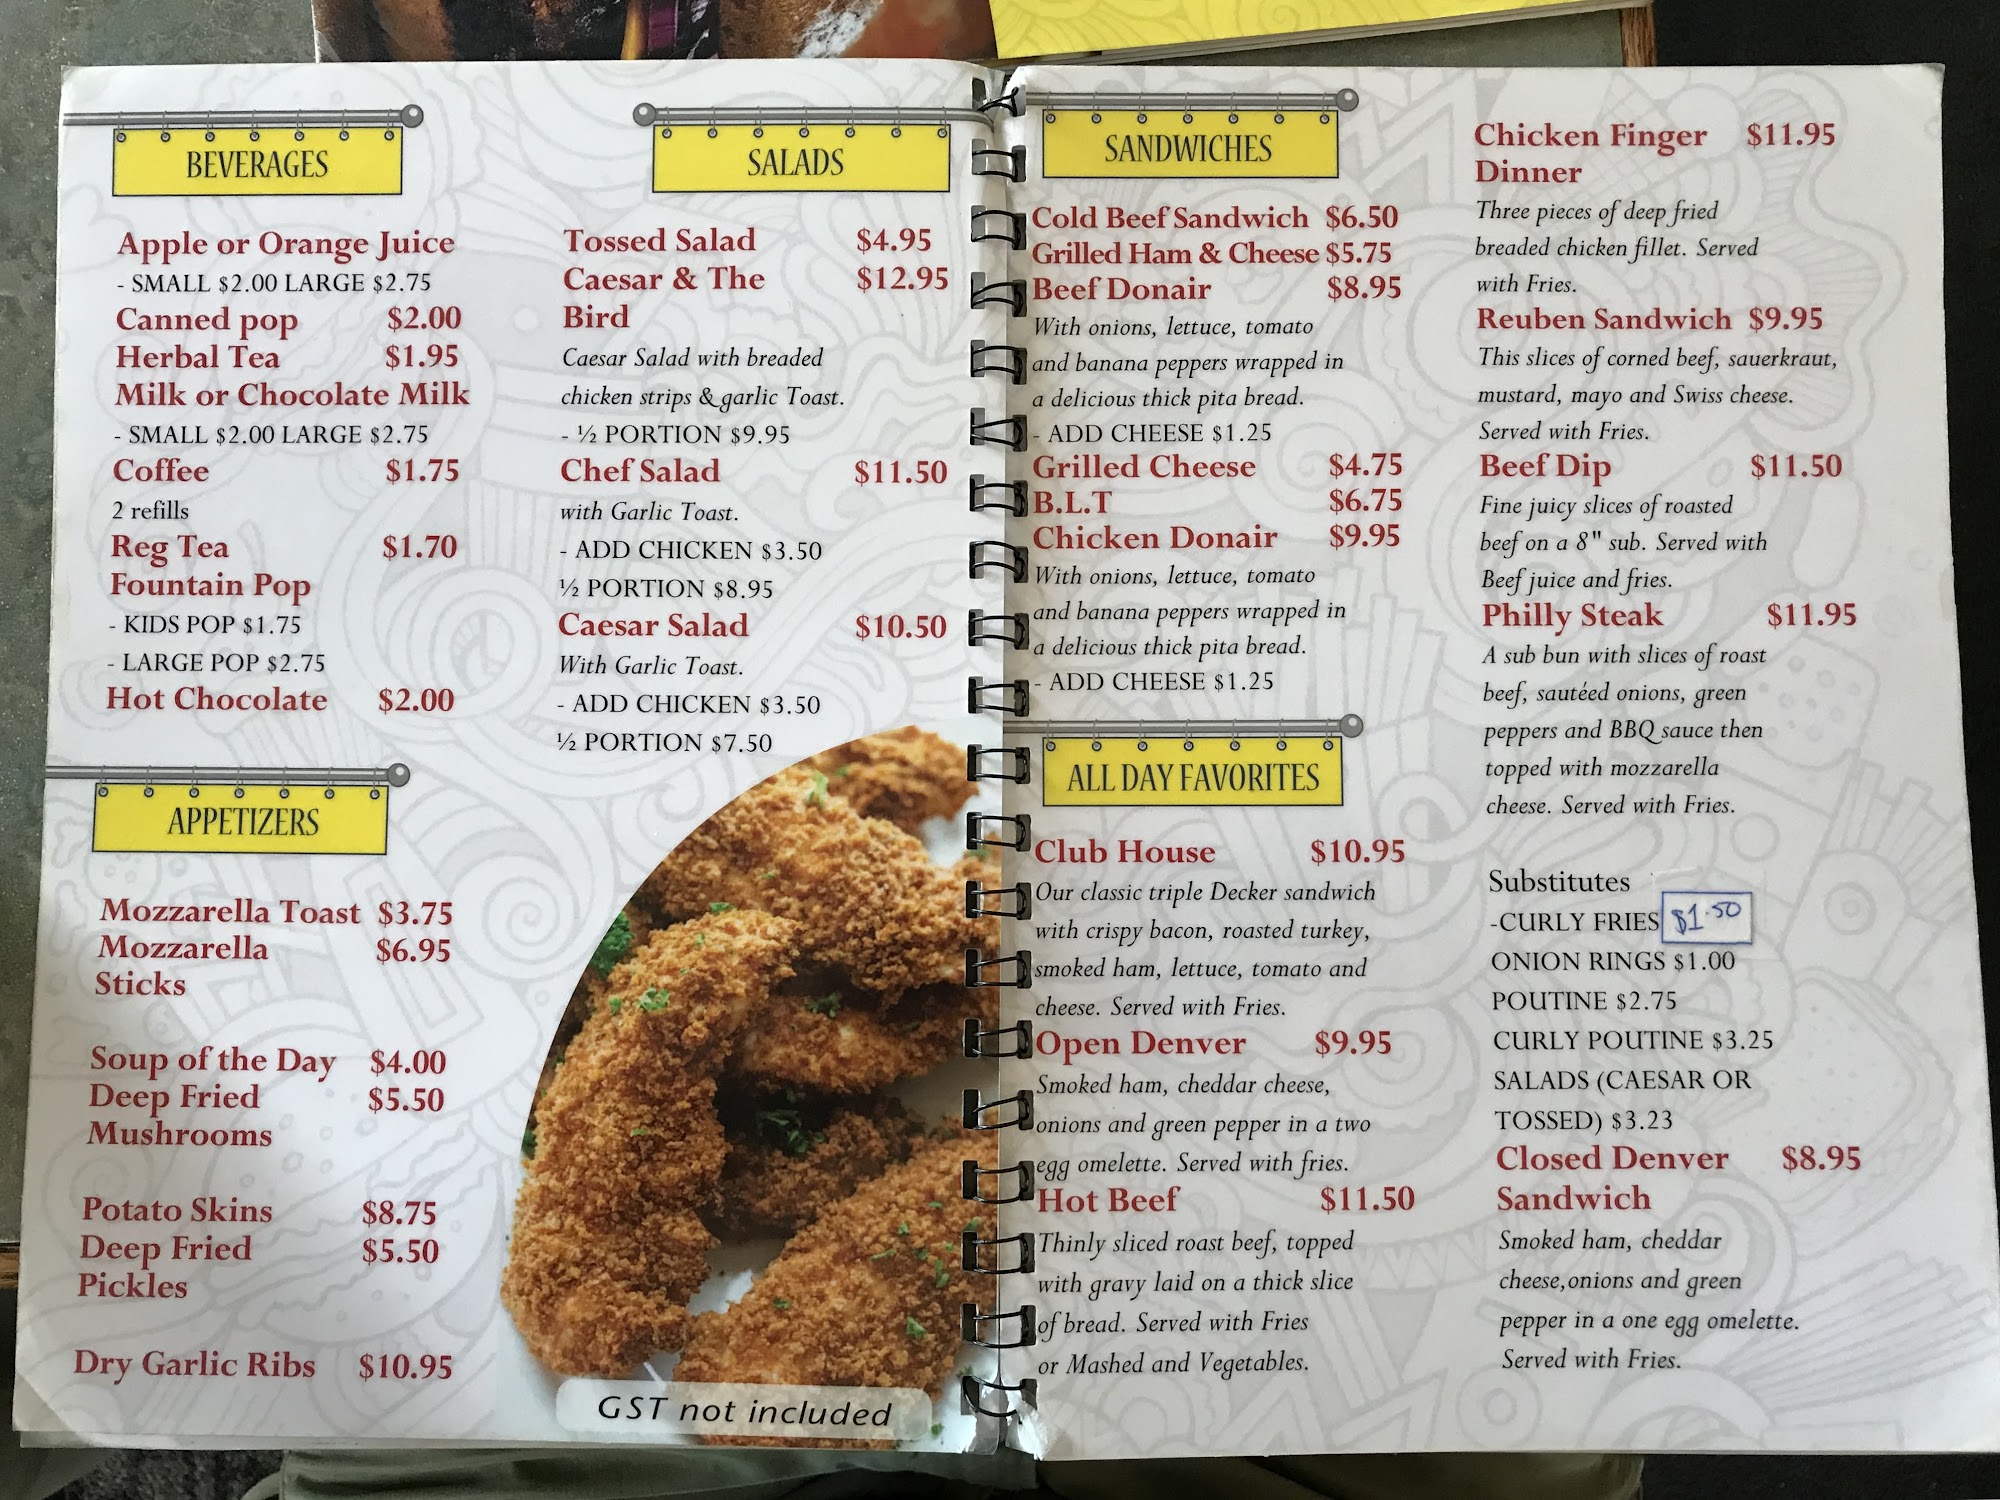 BEVERAGES
Apple or Orange Juice
- SMALL $2.00 LARGE $2.75
Canned pop $2.00
Herbal Tea $1.95
Milk or Chocolate Milk
- SMALL $2.00 LARGE $2.75
Coffee $1.75
2 refills
Reg Tea $1.70
Fountain Pop
- KIDS POP $1.75
- LARGE POP $2.75
Hot Chocolate $2.00
APPETIZERS
Mozzarella Toast $3.75
Mozzarella $6.95
Sticks
Soup of the Day $4.00
Deep Fried $5.50
Mushrooms
Potato Skins $8.75
Deep Fried $5.50
Pickles
Dry Garlic Ribs $10.95
SALADS
Tossed Salad $4.95
Caesar & The $12.95
Bird
Caesar Salad with breaded
chicken strips & garlic Toast.
- ½ PORTION $9.95
Chef Salad $11.50
with Garlic Toast.
- ADD CHICKEN $3.50
½ PORTION $8.95
Caesar Salad $10.50
With Garlic Toast.
- ADD CHICKEN $3.50
½ PORTION $7.50
GST not included
SANDWICHES
Cold Beef Sandwich $6.50
Grilled Ham & Cheese $5.75
Beef Donair $8.95
With onions, lettuce, tomato
and banana peppers wrapped in
a delicious thick pita bread.
- ADD CHEESE $1.25
Grilled Cheese $4.75
B.L.T $6.75
Chicken Donair $9.95
With onions, lettuce, tomato
and banana peppers wrapped in
a delicious thick pita bread.
- ADD CHEESE $1.25
ALL DAY FAVORITES
Club House $10.95
Our classic triple Decker sandwich
with crispy bacon, roasted turkey,
smoked ham, lettuce, tomato and
cheese. Served with Fries.
Open Denver $9.95
Smoked ham, cheddar cheese,
onions and green pepper in a two
egg omelette. Served with fries.
Hot Beef $11.50
Thinly sliced roast beef, topped
with gravy laid on a thick slice
of bread. Served with Fries
or Mashed and Vegetables.
Chicken Finger $11.95
Dinner
Three pieces of deep fried
breaded chicken fillet. Served
with Fries.
Reuben Sandwich $9.95
This slices of corned beef, sauerkraut,
mustard, mayo and Swiss cheese.
Served with Fries.
Beef Dip $11.50
Fine juicy slices of roasted
beef on a 8" sub. Served with
Beef juice and fries.
Philly Steak $11.95
A sub bun with slices of roast
beef, sautéed onions, green
peppers and BBQ sauce then
topped with mozzarella
cheese. Served with Fries.
Substitutes
-CURLY FRIES $1.50
ONION RINGS $1.00
POUTINE $2.75
CURLY POUTINE $3.25
SALADS (CAESAR OR
TOSSED) $3.23
Closed Denver $8.95
Sandwich
Smoked ham, cheddar
cheese,onions and green
pepper in a one egg omelette.
Served with Fries.